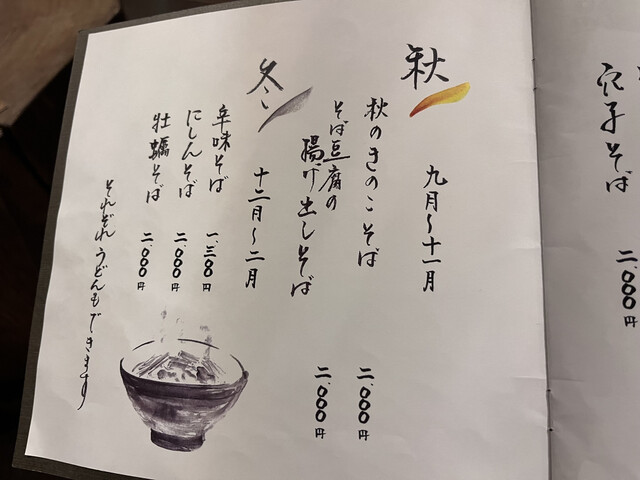 穴子そば
二、〇〇〇円
秋
九月〜十一月
秋のきのこそば
二、〇〇〇円
そば豆腐の
揚げ出しそば
二、〇〇〇円
冬
十二月〜二月
辛味そば
一、三〇〇円
にしんそば
二、〇〇〇円
牡蠣そば
二、〇〇〇円
それぞれうどんもできます